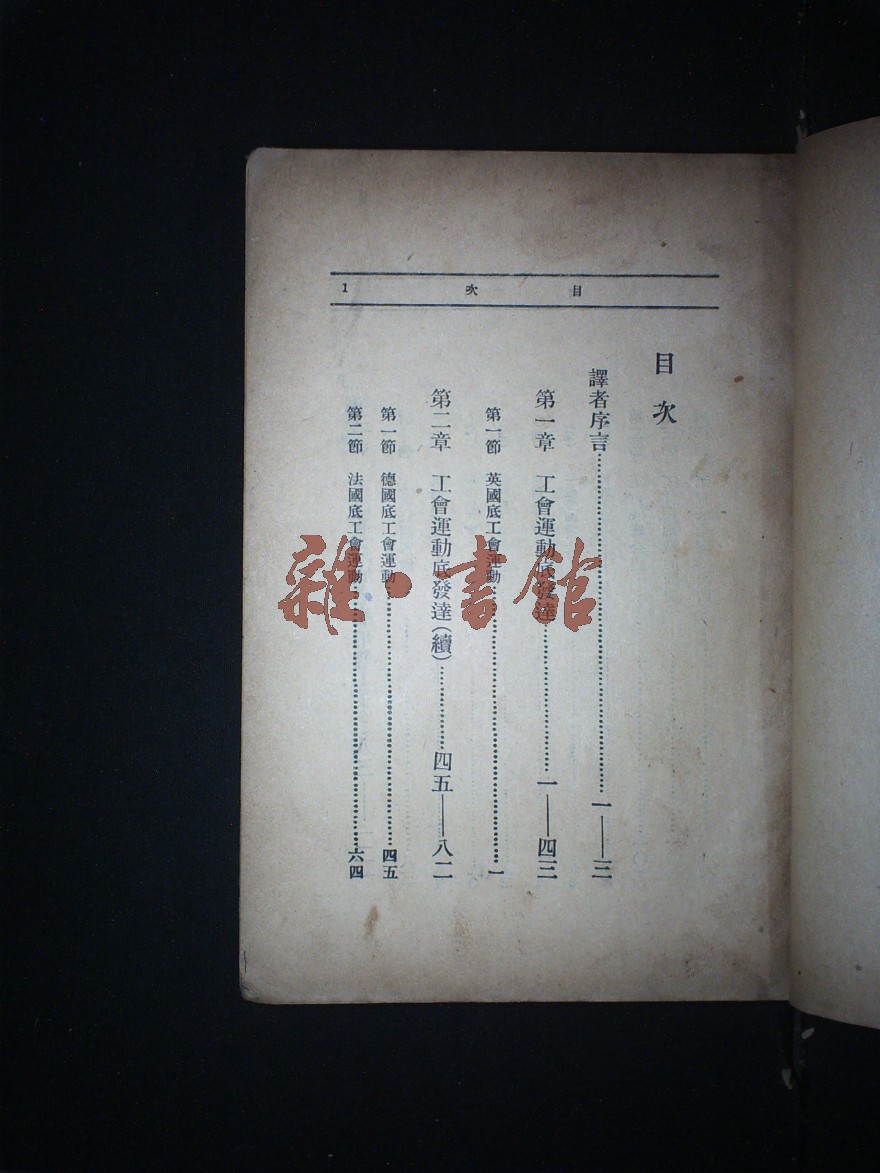 目次 1
目次
譯者序言……一——三
第一章 工會運動底發達……一——四三
第一節 英國底工會運動……一
第二章 工會運動底發達(續)……四五——八二
第一節 德國底工會運動……四五
第二節 法國底工會運動……六四
雜·書館